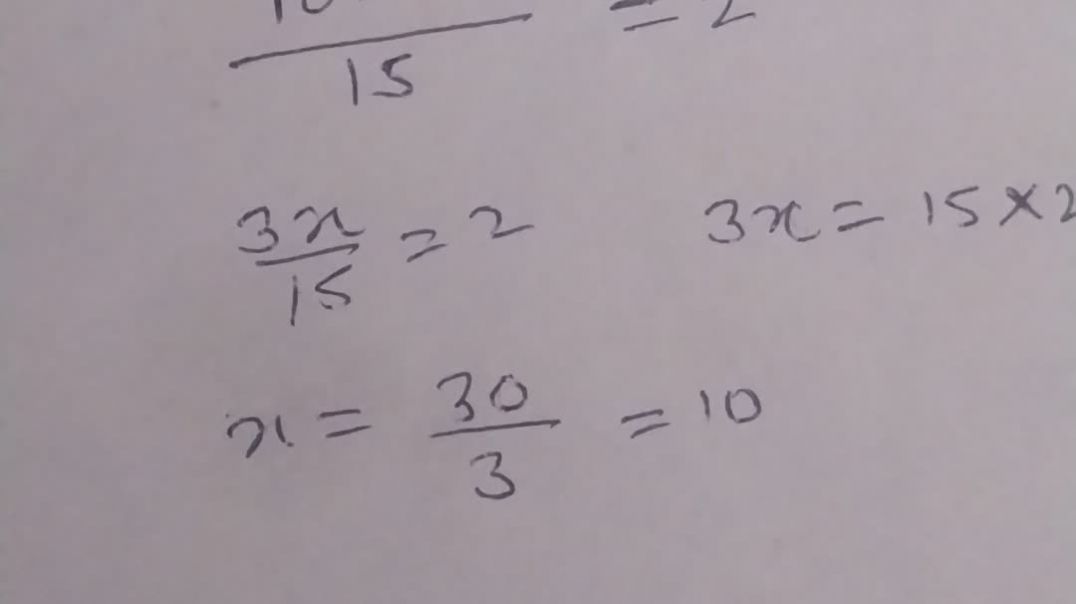 15 = 2
3x/15 = 2 3x = 15 × 2
x = 30/3 = 10